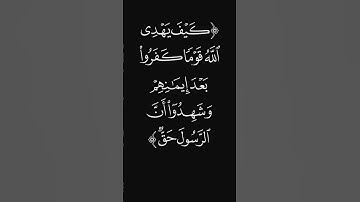 ﴿كَيْفَ يَهْدِى
ٱللَّهُ قَوْمًا كَفَرُوا۟
بَعْدَ إِيمَـٰنِهِمْ
وَشَهِدُوٓا۟ أَنَّ
ٱلرَّسُولَ حَقٌّ﴾